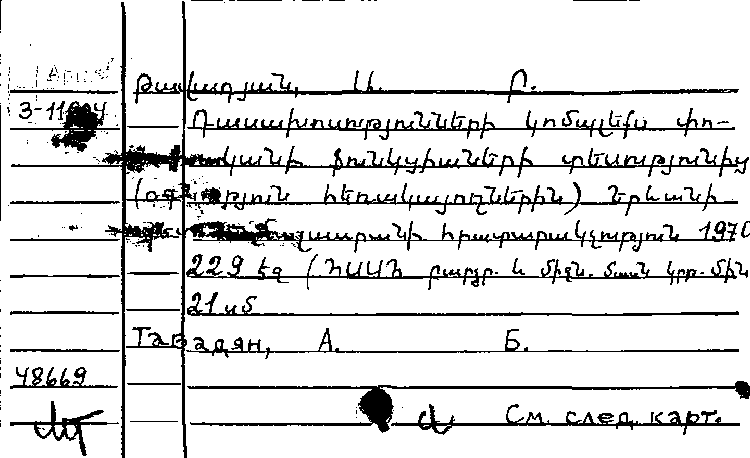 Թավադյան, Ա. Բ.
Դասախոսությունների կոմպլեքս փո-
կանի ֆունկցիաների տեսությունից
(օգնություն հեռակայողներին) Երևանի
հրատարակչություն 1970
229 էջ (ՀՍՍՀ բարձր. և միջն. մասն կրթ. մին
21 սմ
Тавадян, А. Б.
48669
См. след. карт.